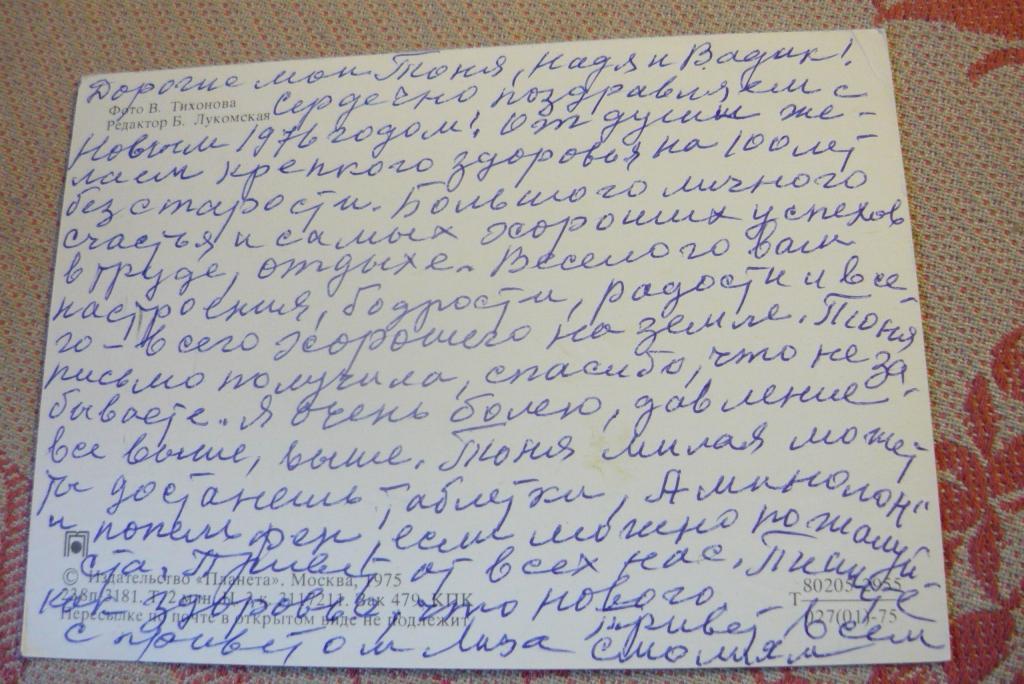 Дорогие мои Тоня, Надя и Вадик!
Фото В. Тихонова
Редактор Б. Лукомская
Сердечно поздравляем с
Новым 1976 годом! От души же-
лаем крепкого здоровья на 100 лет
без старости. Большого личного
счастья и самых хороших успехов
в труде, отдыхе. Веселого вам
настроения, бодрости, радости и все-
го - всего хорошего на земле. Тоня
письмо получила, спасибо, что не за-
бываете. Я очень болею, давление
все выше, выше. Тоня милая может
ты достанешь таблетки, Аминолон
и попельфен, если можно пожалуй-
ста. Привет от всех нас. Пишите
© Издательство «Планета». Москва, 1975
как здоровье, что нового
Пересылке по почте в открытом виде не подлежит
80205-3955
Т
027(01)-75
Привет всем
с приветом Лиза